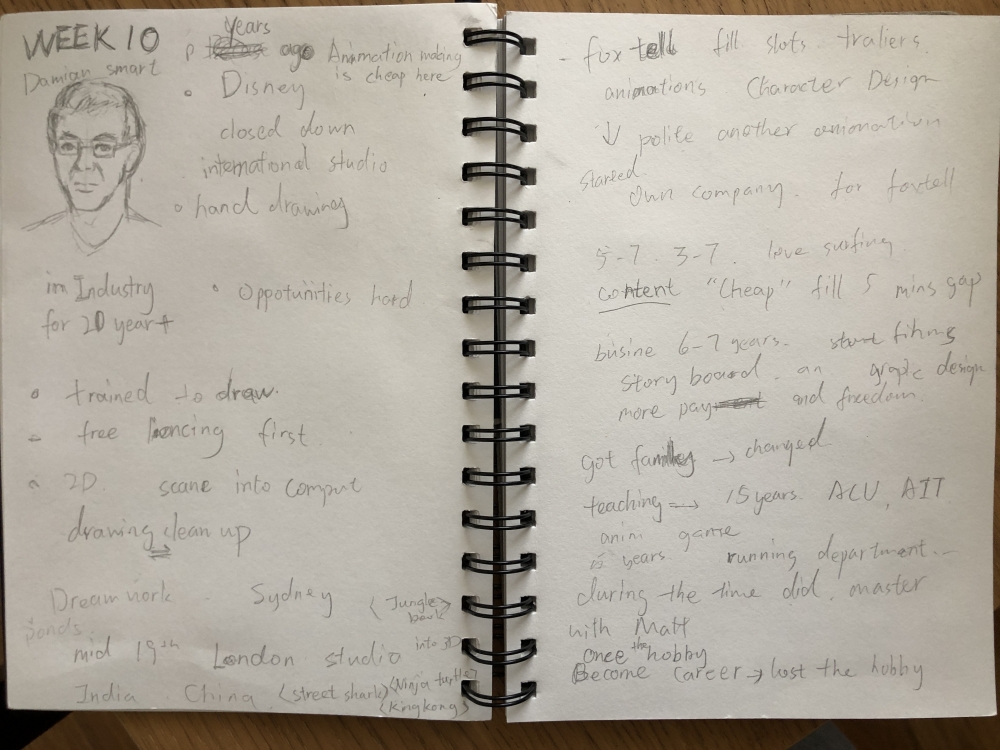 WEEK 10
Damian smart
years
ago Animation making
is cheap here
Disney
closed down
international studio
hand drawing
in Industry
for 20 year+
Oppotunities hard
trained to draw.
free lancing first
2D. scane into comput
drawing clean up
Dreamwork Sydney (Jungle
book)
mid 19th London studio into 3D
India China (street shark) (Ninja turtle)
(King kong)
- foxtell fill slots traliers
animations Character Design
↓ polite another
stareed
Own company. for foxtell
5-7 3-7 love surfing
content "Cheap" fill 5 mins gap
busine 6-7 years. start
story board. an grapic design
more pay and freedom.
got family → changed
teaching → 15 years ACU, AIT
anim game
years running department. -
during the time did master
with Matt
once the hobby
Become career → lost the hobby